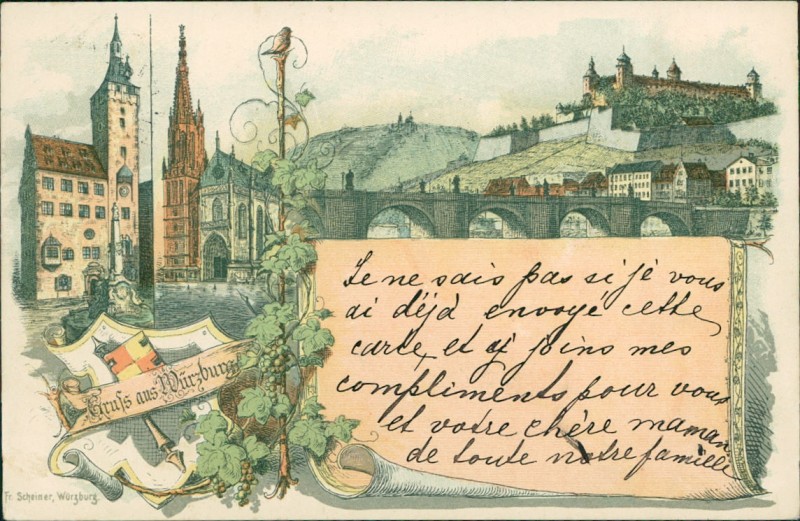 Je ne sais pas si je vous
ai déjà envoyé cette
carte, et y joins mes
compliments pour vous
et votre chère maman
de toute notre famille
Gruß aus Würzburg
Fr. Scheiner, Würzburg.